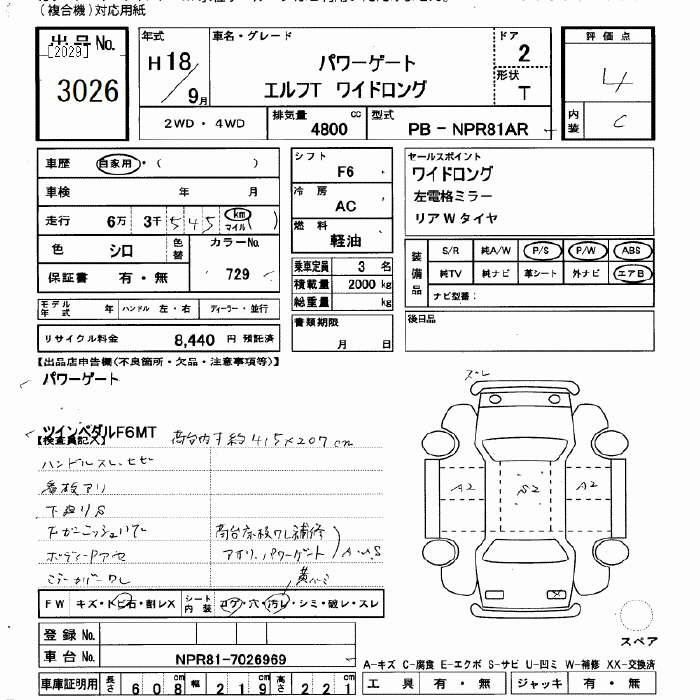 (複合機)対応用紙
出品No.
[2029]
3026
年式
H18/9月
車名・グレード
パワーゲート
エルフT ワイドロング
ドア
2
形状
T
評価点
4
内装
C
2WD・4WD
排気量
4800 cc
型式
PB - NPR81AR
車歴 自家用・( )
車検 年 月
走行 6万 3千 545 km マイル ( )
色 シロ 色替
カラーNo.
729
保証書 有・無
モデル年式 年 ハンドル 左・右 ディーラー・並行
リサイクル料金 8,440 円 預託済
シフト
F6
冷房
AC
燃料
軽油
乗車定員 3 名
積載量 2000 kg
総重量 kg
書類期限
月 日
セールスポイント
ワイドロング
左電格ミラー
リアWタイヤ
装備品
S/R 純A/W P/S P/W ABS
純TV 純ナビ 革シート 外ナビ エアB
ナビ型番:
後日品
【出品店申告欄(不良箇所・欠品・注意事項等)】
パワーゲート
ツインペダルF6MT
【検査員記入】
荷台内寸約415×207cm
ハンドルスレ、ヒビ
看板アリ
下廻りS
荷台床板ワレ補修
アオリ、パワーゲート
A・U・S
スレ
A2
S2
A2
FW キズ・トビ石・割レX
シート内装 コゲ・穴・汚レ・シミ・破レ・スレ
登録No.
車台No. NPR81-7026969
車庫証明用 長さ 608 幅 219 高さ 221
スペア
A-キズ C-腐食 E-エクボ S-サビ U-凹ミ W-補修 XX-交換済
工具 有・無 ジャッキ 有・無